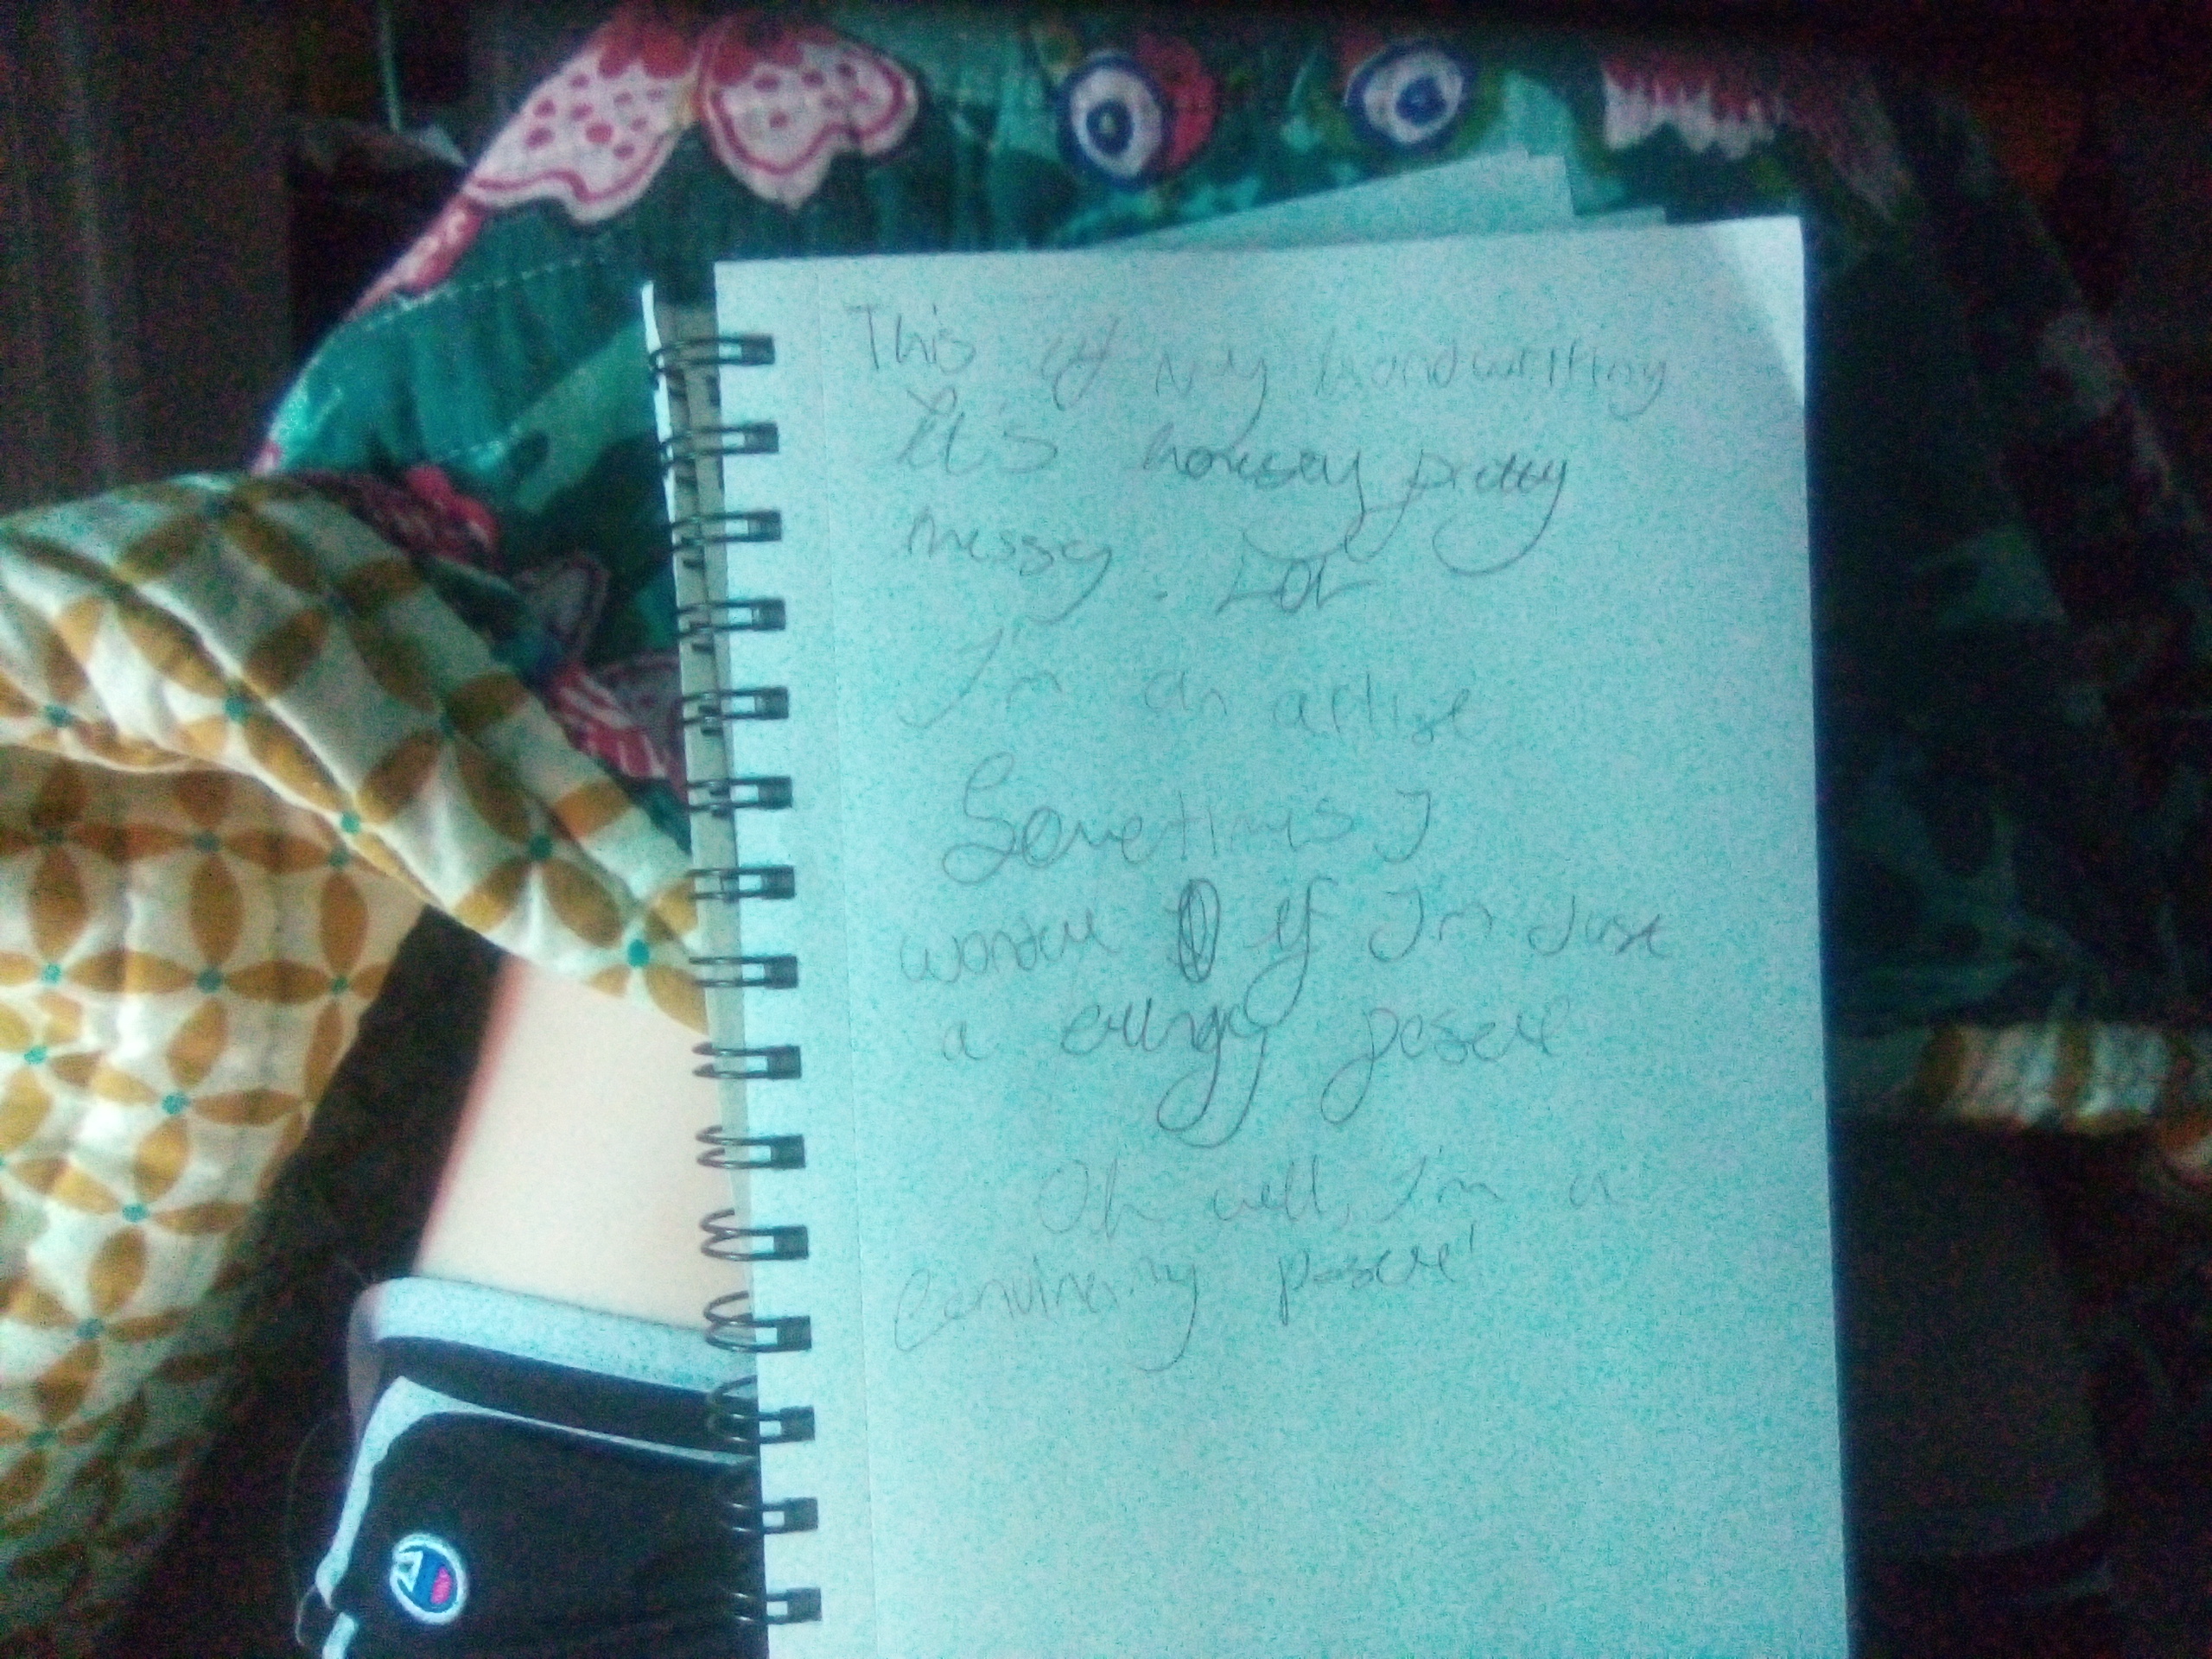 This is my handwriting
It's honesey pretty
messy. LOL
I'm an artist
Sometimes I
wonder if I'm Just
a cringy poser
Oh well, I'm a
Genuinely poser!